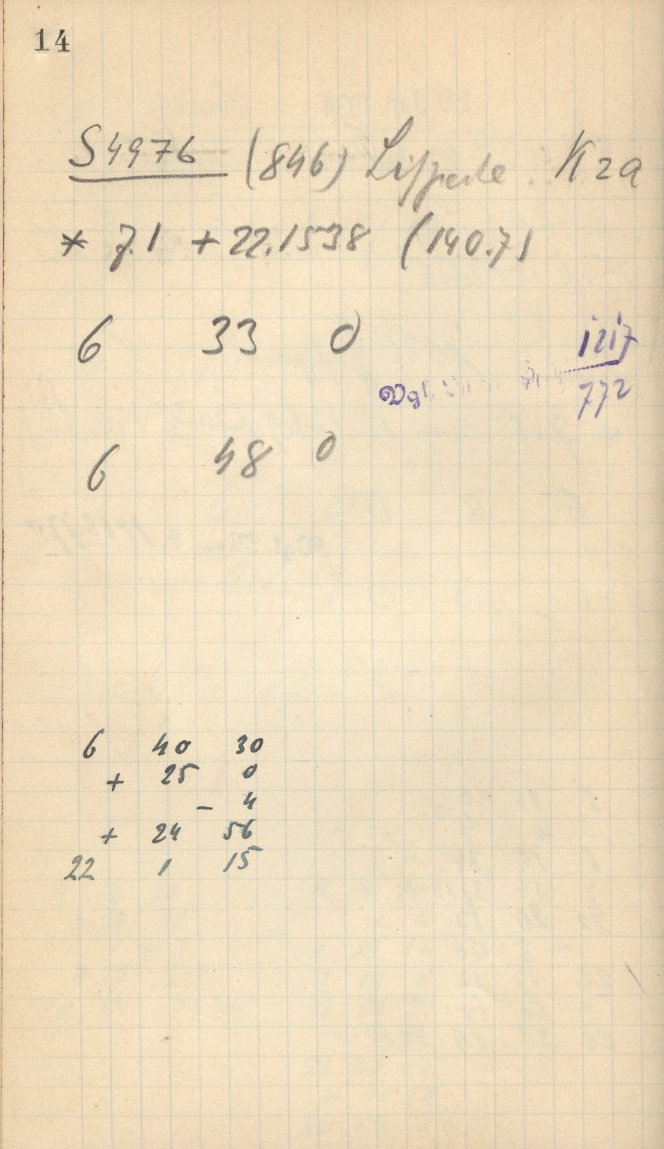 14
S4976 (846) K2a
* 7.1 +22.1538 (140.7)
6 33 0
1217
772
6 48 0
6 40 30
+ 25 0
- 4
+ 24 56
22 1 15